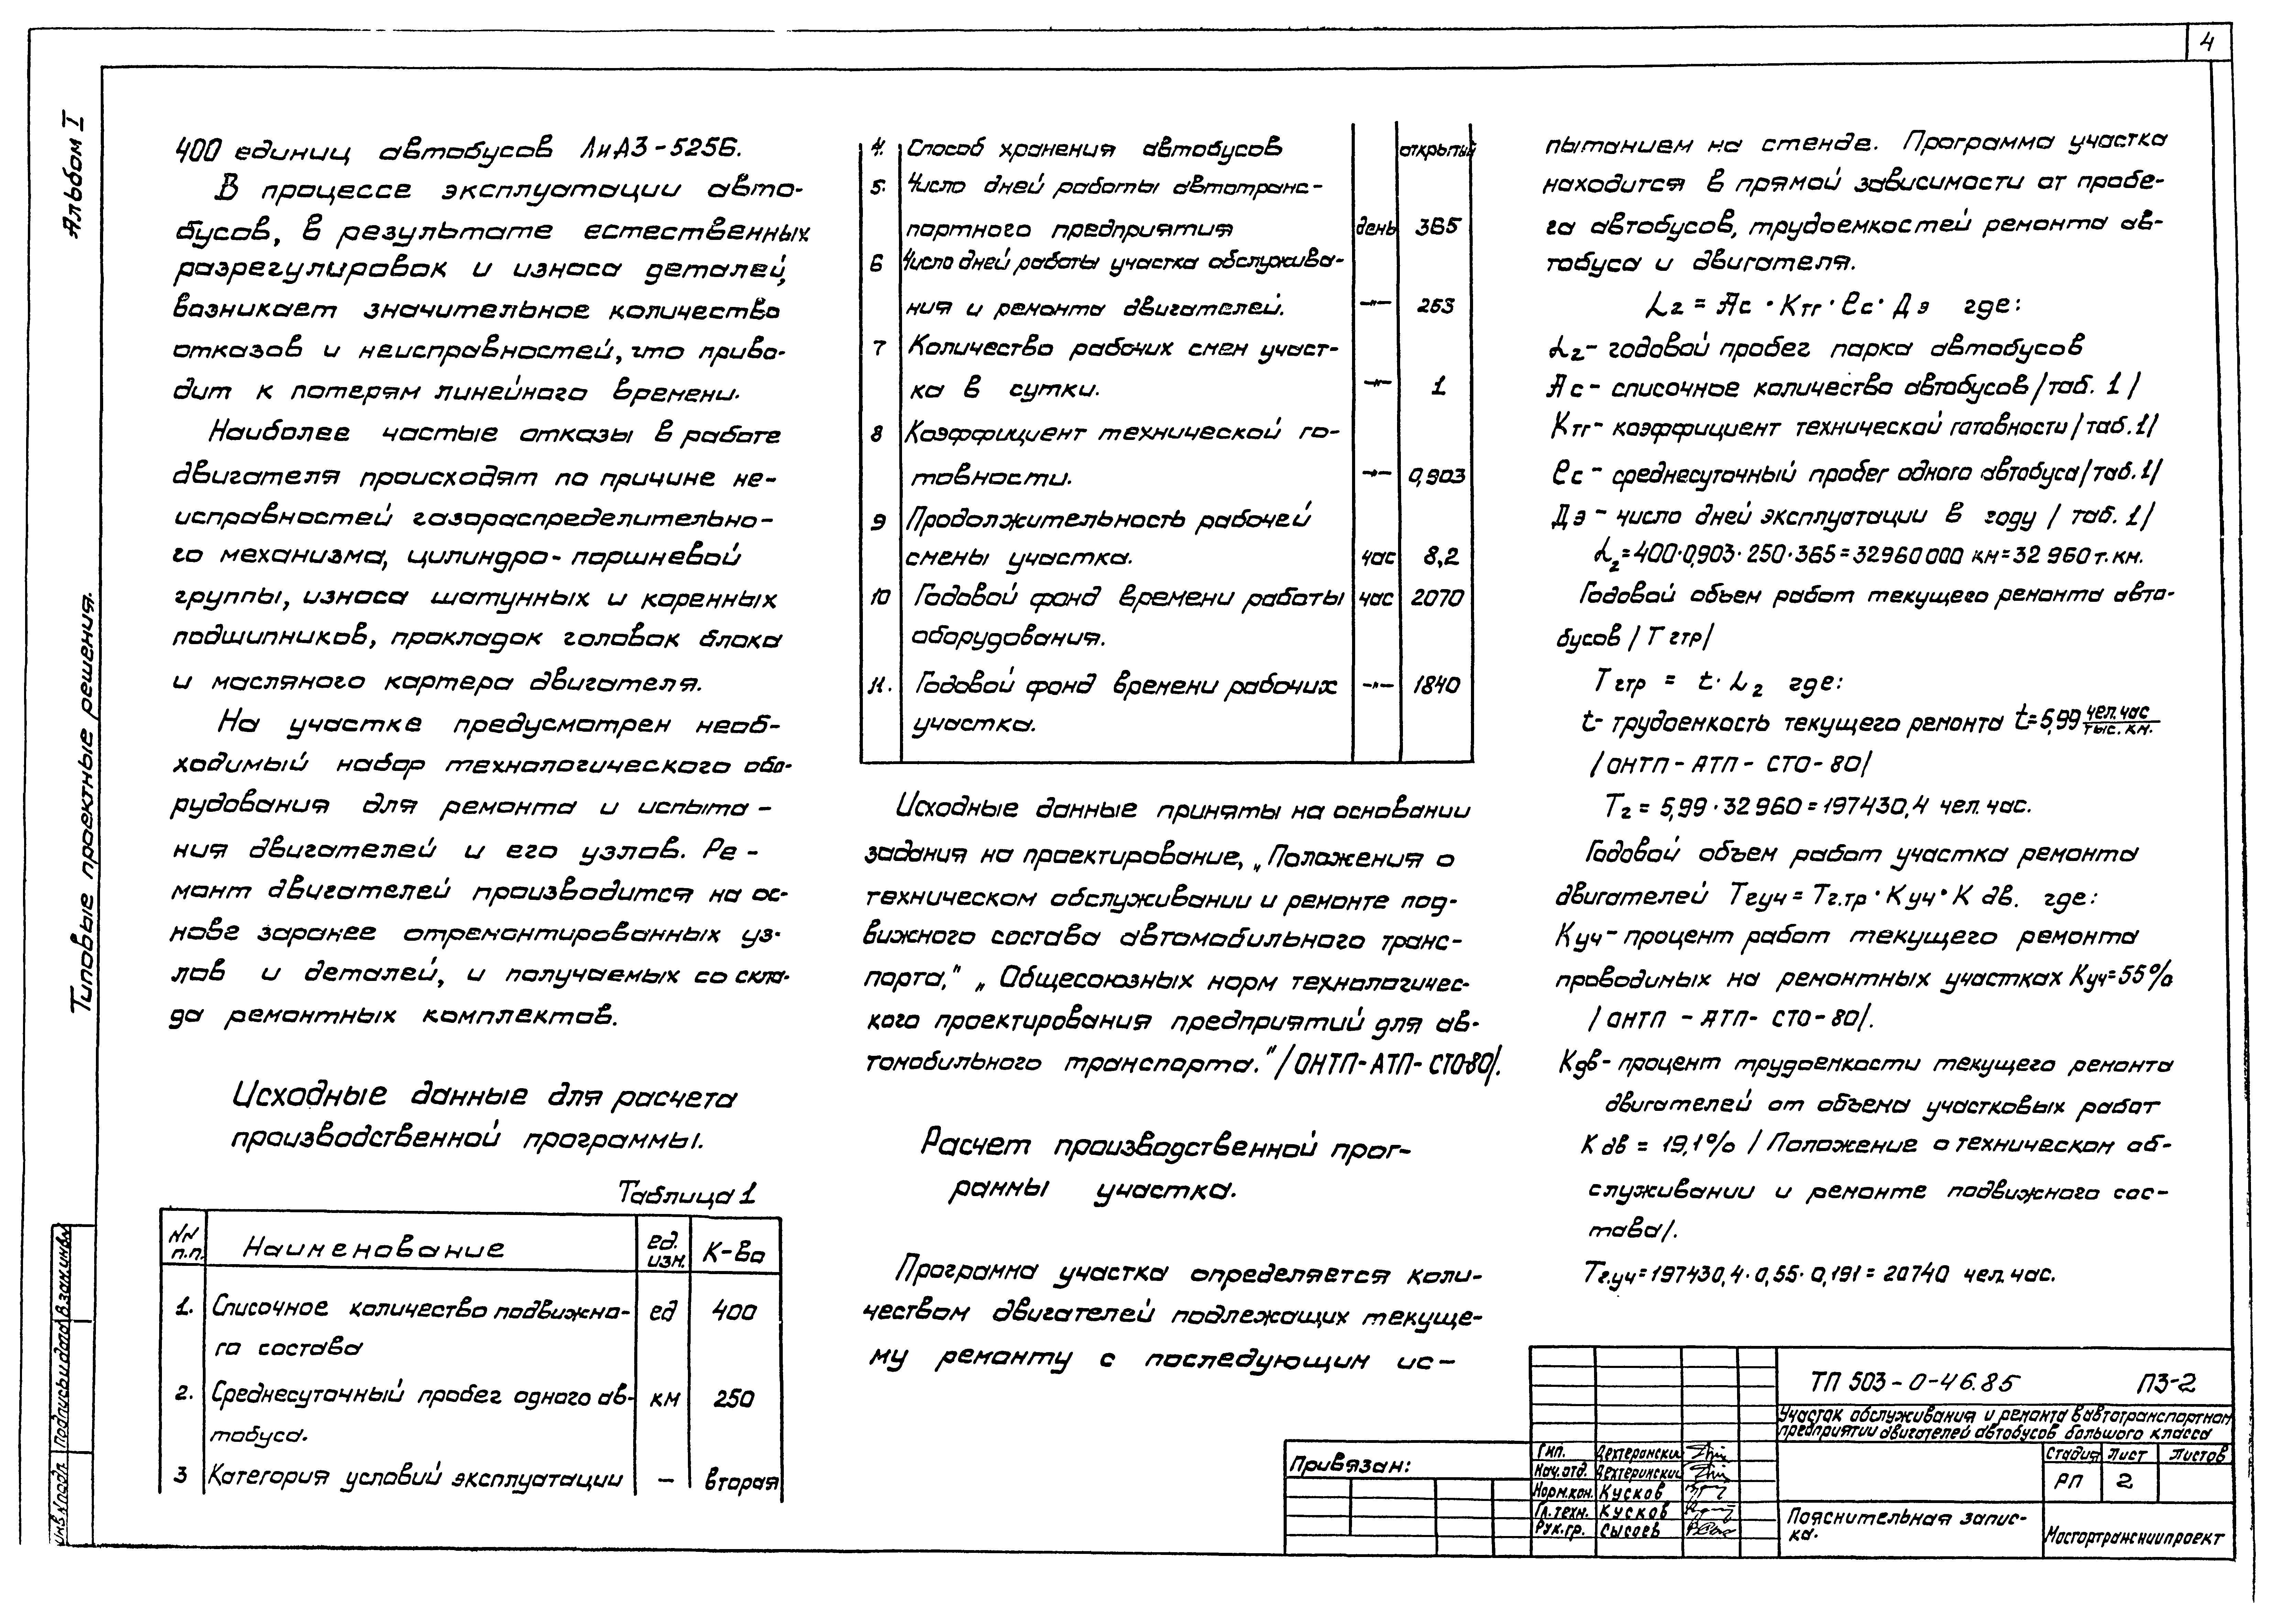 4
Альбом I
Типовые проектные решения.
400 единиц автобусов ЛиАЗ-5256.
В процессе эксплуатации авто-
бусов, в результате естественных
разрегулировок и износа деталей,
возникает значительное количество
отказов и неисправностей, что приво-
дит к потерям линейного времени.
Наиболее частые отказы в работе
двигателя происходят по причине не-
исправностей газораспределительно-
го механизма, цилиндро-поршневой
группы, износа шатунных и коренных
подшипников, прокладок головок блока
и масляного картера двигателя.
На участке предусмотрен необ-
ходимый набор технологического обо-
рудования для ремонта и испыта-
ния двигателей и его узлов. Ре-
монт двигателей производится на ос-
нове заранее отремонтированных уз-
лов и деталей, и получаемых со скла-
да ремонтных комплектов.
Исходные данные для расчета
производственной программы.
Таблица 1
NN п.п. Наименование ед. изм. К-во
1. Списочное количество подвижно- ед 400
го состава
2. Среднесуточный пробег одного ав- км 250
тобуса.
3 Категория условий эксплуатации — вторая
4. Способ хранения автобусов открытый
5. Число дней работы автотранс-
портного предприятия день 365
6 Число дней работы участка обслужива-
ния и ремонта двигателей. -"- 253
7 Количество рабочих смен участ-
ка в сутки. -"- 1
8 Коэффициент технической го-
товности. -"- 0,903
9 Продолжительность рабочей
смены участка. час 8,2
10 Годовой фонд времени работы час 2070
оборудования.
11. Годовой фонд времени рабочих -"- 1840
участка.
Исходные данные приняты на основании
задания на проектирование, „Положения о
техническом обслуживании и ремонте под-
вижного состава автомобильного транс-
порта," „Общесоюзных норм технологичес-
кого проектирования предприятий для ав-
томобильного транспорта."/ОНТП-АТП-СТО-80/.
Расчет производственной прог-
раммы участка.
Программа участка определяется коли-
чеством двигателей подлежащих текуще-
му ремонту с последующим ис-
пытанием на стенде. Программа участка
находится в прямой зависимости от пробе-
га автобусов, трудоемкостей ремонта ав-
тобуса и двигателя.
Lг = Ас · Ктг · ℓс · Дэ где:
Lг- годовой пробег парка автобусов
Ас - списочное количество автобусов /таб. 1/
Ктг- коэффициент технической готовности /таб.1/
ℓс - среднесуточный пробег одного автобуса /таб.1/
Дэ - число дней эксплуатации в году / таб. 1/
Lг=400·0,903·250·365=32960000 км=32 960 т. км.
Годовой объем работ текущего ремонта авто-
бусов /Т гтр/
Тгтр = t · Lг где:
t- трудоемкость текущего ремонта t=5,99 чел.час/тыс.км.
/ОНТП-АТП-СТО-80/
Тг = 5,99 · 32960 = 197430,4 чел. час.
Годовой объем работ участка ремонта
двигателей Тгуч = Тг.тр · Куч · К дв. где:
Куч- процент работ текущего ремонта
проводимых на ремонтных участках Куч=55%
/ОНТП - АТП- СТО-80/.
Кдв- процент трудоемкости текущего ремонта
двигателей от объема участковых работ
К дв = 19,1% /Положение о техническом об-
служивании и ремонте подвижного сос-
тава/.
Тг.уч=197430,4·0,55·0,191=20740 чел. час.
Привязан:
Гип. Дехтеринский
Нач.отд. Дехтеринский
Норм.кон. Кусков
Гл.техн. Кусков
Рук.гр. Сысоев
ТП 503-0-46.85 ПЗ-2
Участок обслуживания и ремонта в автотранспортном
предприятии двигателей автобусов большого класса
Стадия Лист Листов
РП 2
Пояснительная запис-
ка.
Мосгортрансниипроект
Инв.N подл. Подпись и дата Взам.инв.N